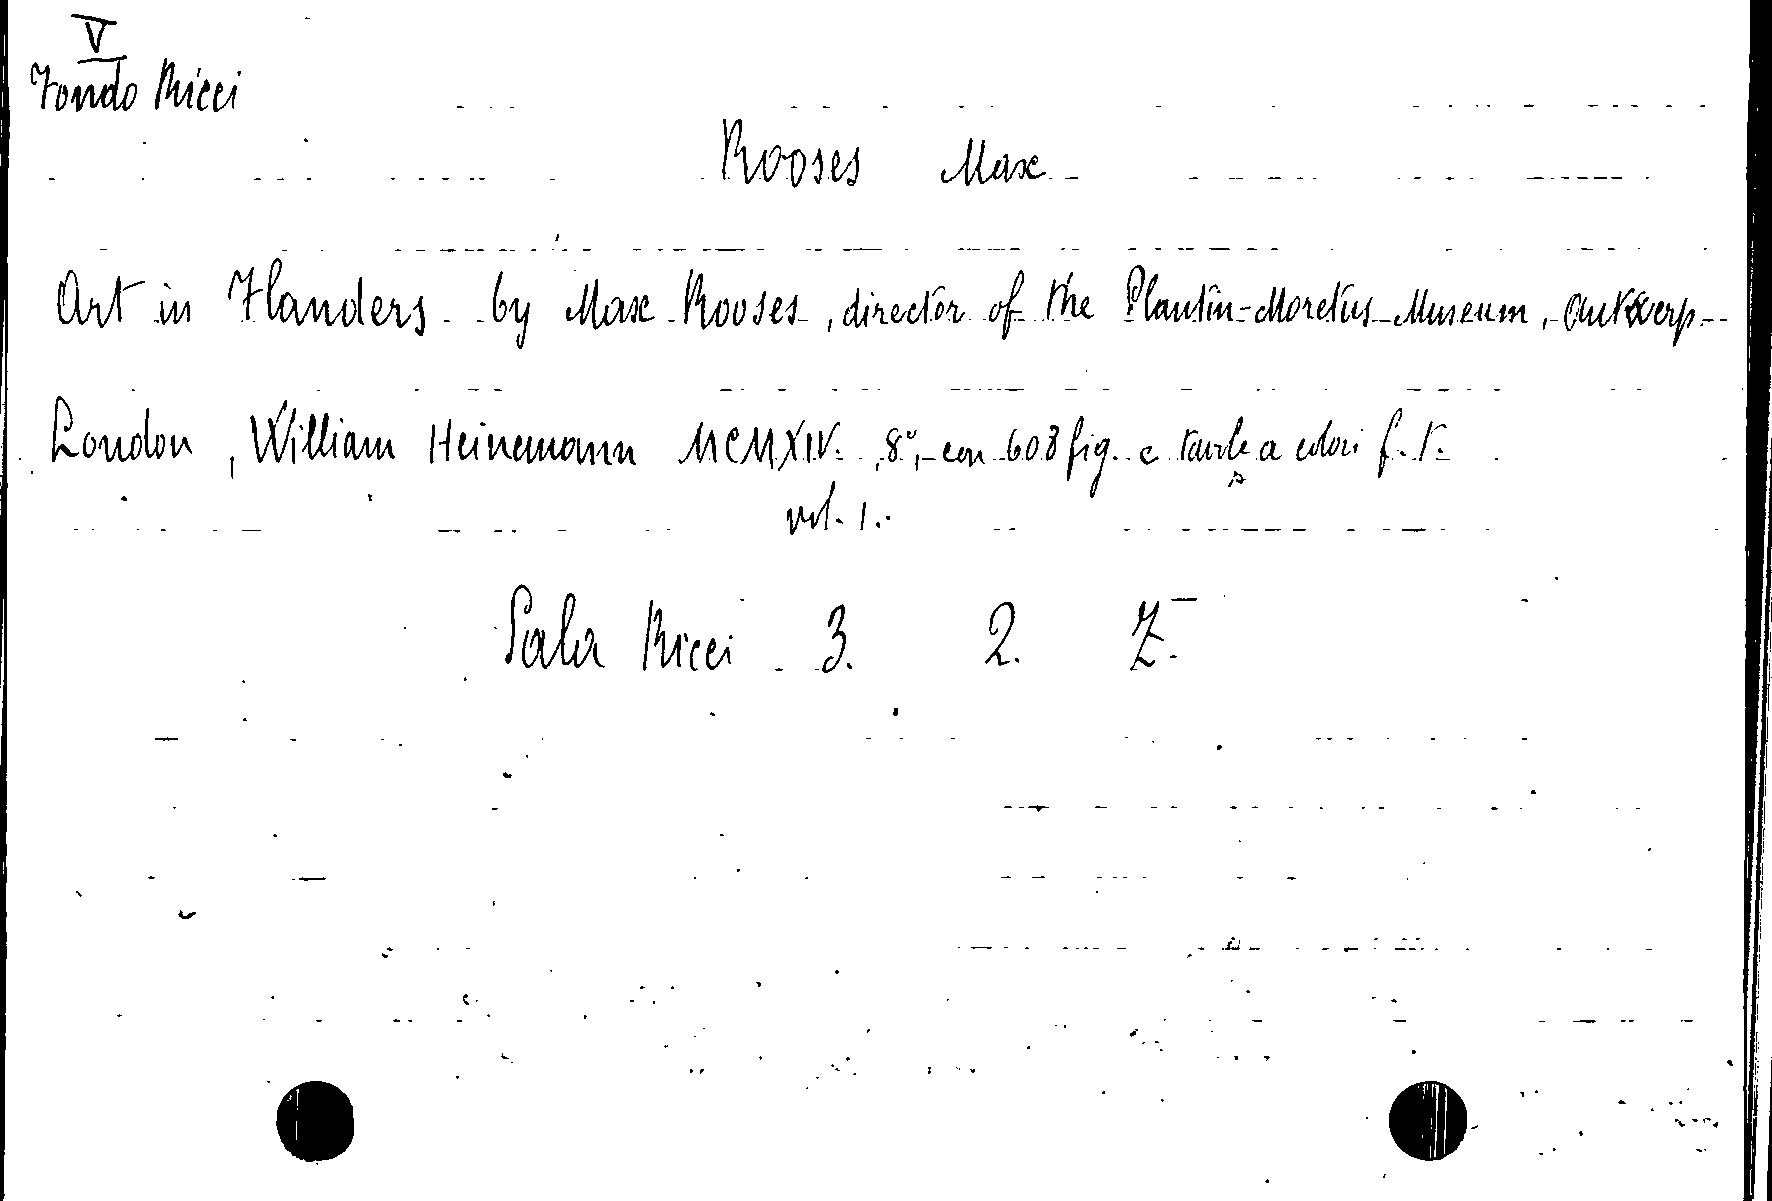 V
Fondo Ricci
Rooses Max
Art in Flanders by Max Rooses, director of the Plantin-Moretus-Museum, Antwerp
London, William Heinemann MCMXIV. , 8°, con 608 fig. e tavole a colori f. t.
vol. 1.
Sala Ricci . 3. 2. Z.